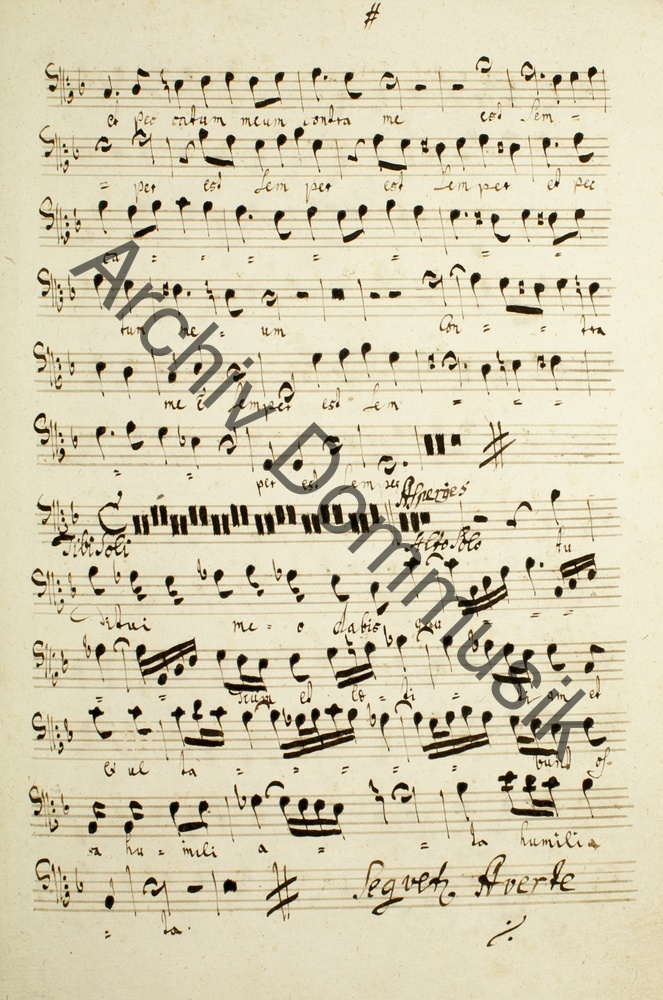 et pec catum meum contra me est sem =
= per est sem per est sem per et pec
ca = = = = = =
tum me = um con = = tra
me est semper est sem = = =
= = per est sem per
Asperges
Tibi Soli Alto Solo tu
ditui me = o dabis gau = =
= = dium et læ = ti = = ti am et
ex ul ta = = = = = = bunt os=
sa hu = mili a = = ta humilia
= ta.
Seqvetr Averte
Archiv Dommusik